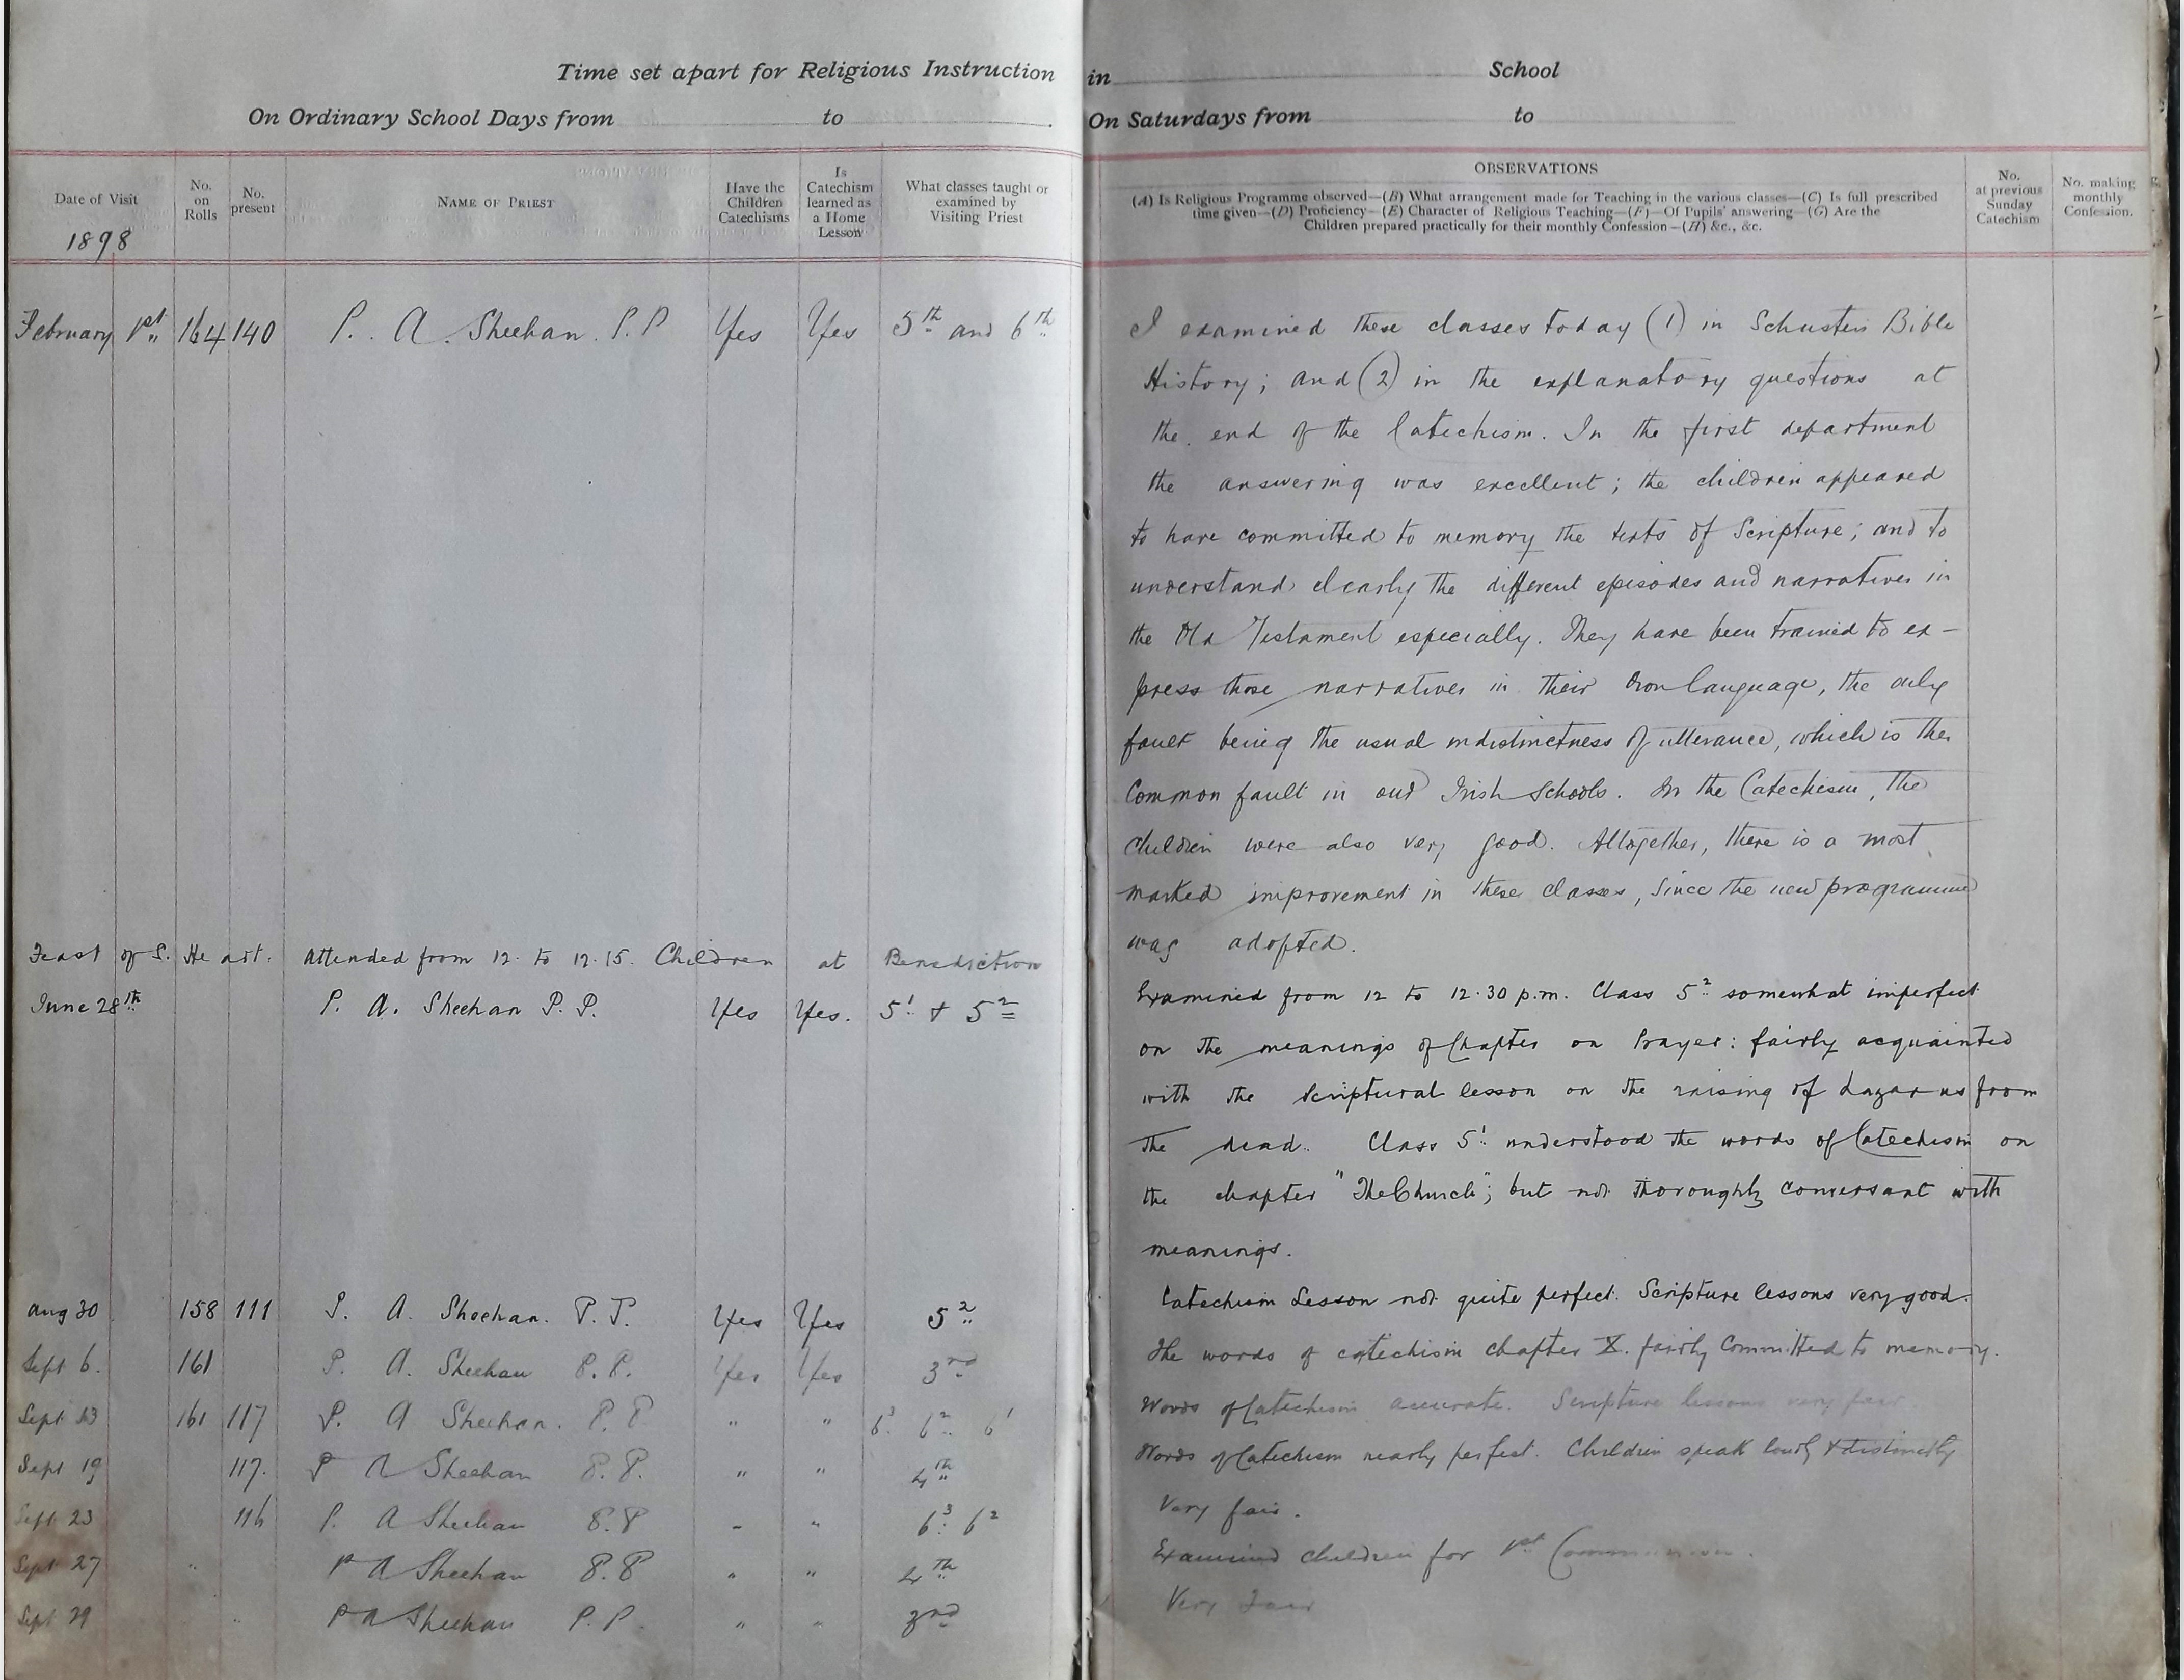 Time set apart for Religious Instruction in School
On Ordinary School Days from to . On Saturdays from to
Date of Visit
1898
No. on Rolls
No. present
NAME OF PRIEST
Have the Children Catechisms
Is Catechism learned as a Home Lesson
What classes taught or examined by Visiting Priest
OBSERVATIONS
(A) Is Religious Programme observed—(B) What arrangement made for Teaching in the various classes—(C) Is full prescribed
time given—(D) Proficiency—(E) Character of Religious Teaching—(F)—Of Pupils' answering—(G) Are the
Children prepared practically for their monthly Confession—(H) &c., &c.
No. at previous Sunday Catechism
No. making monthly Confession.
February 1st 164 140 P. A. Sheehan. P.P Yes Yes 5th and 6th
I examined these classes today (1) in Schusters Bible
History; and (2) in the explanatory questions at
the end of the Catechism. In the first department
the answering was excellent; the children appeared
to have committed to memory the texts of Scripture; and to
understand clearly the different episodes and narratives in
the Old Testament especially. They have been trained to ex-
press those narratives in their own language, the only
fault being the usual indistinctness of utterance, which is the
common fault in our Irish Schools. In the Catechism, the
children were also very good. Altogether, there is a most
marked improvement in these classes, since the new programme
was adopted.
Feast of S. Heart. Attended from 12 to 12.15. Children at Benediction
June 28th P. A. Sheehan P.P. Yes Yes. 5¹ & 5²
Examined from 12 to 12.30 p.m. Class 5² somewhat imperfect
on the meanings of Chapter on Prayer: fairly acquainted
with the scriptural lesson on the raising of Lazarus from
the dead. Class 5¹ understood the words of Catechism on
the chapter "The Church"; but not thoroughly conversant with
meanings.
Aug 30 158 111 P. A. Sheehan. P.P. Yes Yes 5²
Catechism Lesson not quite perfect. Scripture lessons very good.
Sept 6. 161 P. A. Sheehan P.P. Yes Yes 3rd
The words of catechism chapter X. fairly Committed to memory.
Sept 13 161 117 P. A Sheehan. P.P " " 6³ 6² 6¹
Words of Catechism accurate. Scripture lessons very fair
Sept 19 117. P A Sheehan P.P. " " 4th
Words of Catechism nearly perfect. Children speak loudly & distinctly
Sept 23 116 P. A Sheehan P.P " " 6³ 6²
Very fair.
Sept 27 P A Sheehan P.P " " 4th
Examined children for 1st Communion.
Sept 29 P A Sheehan P.P. " " 3rd
Very Fair